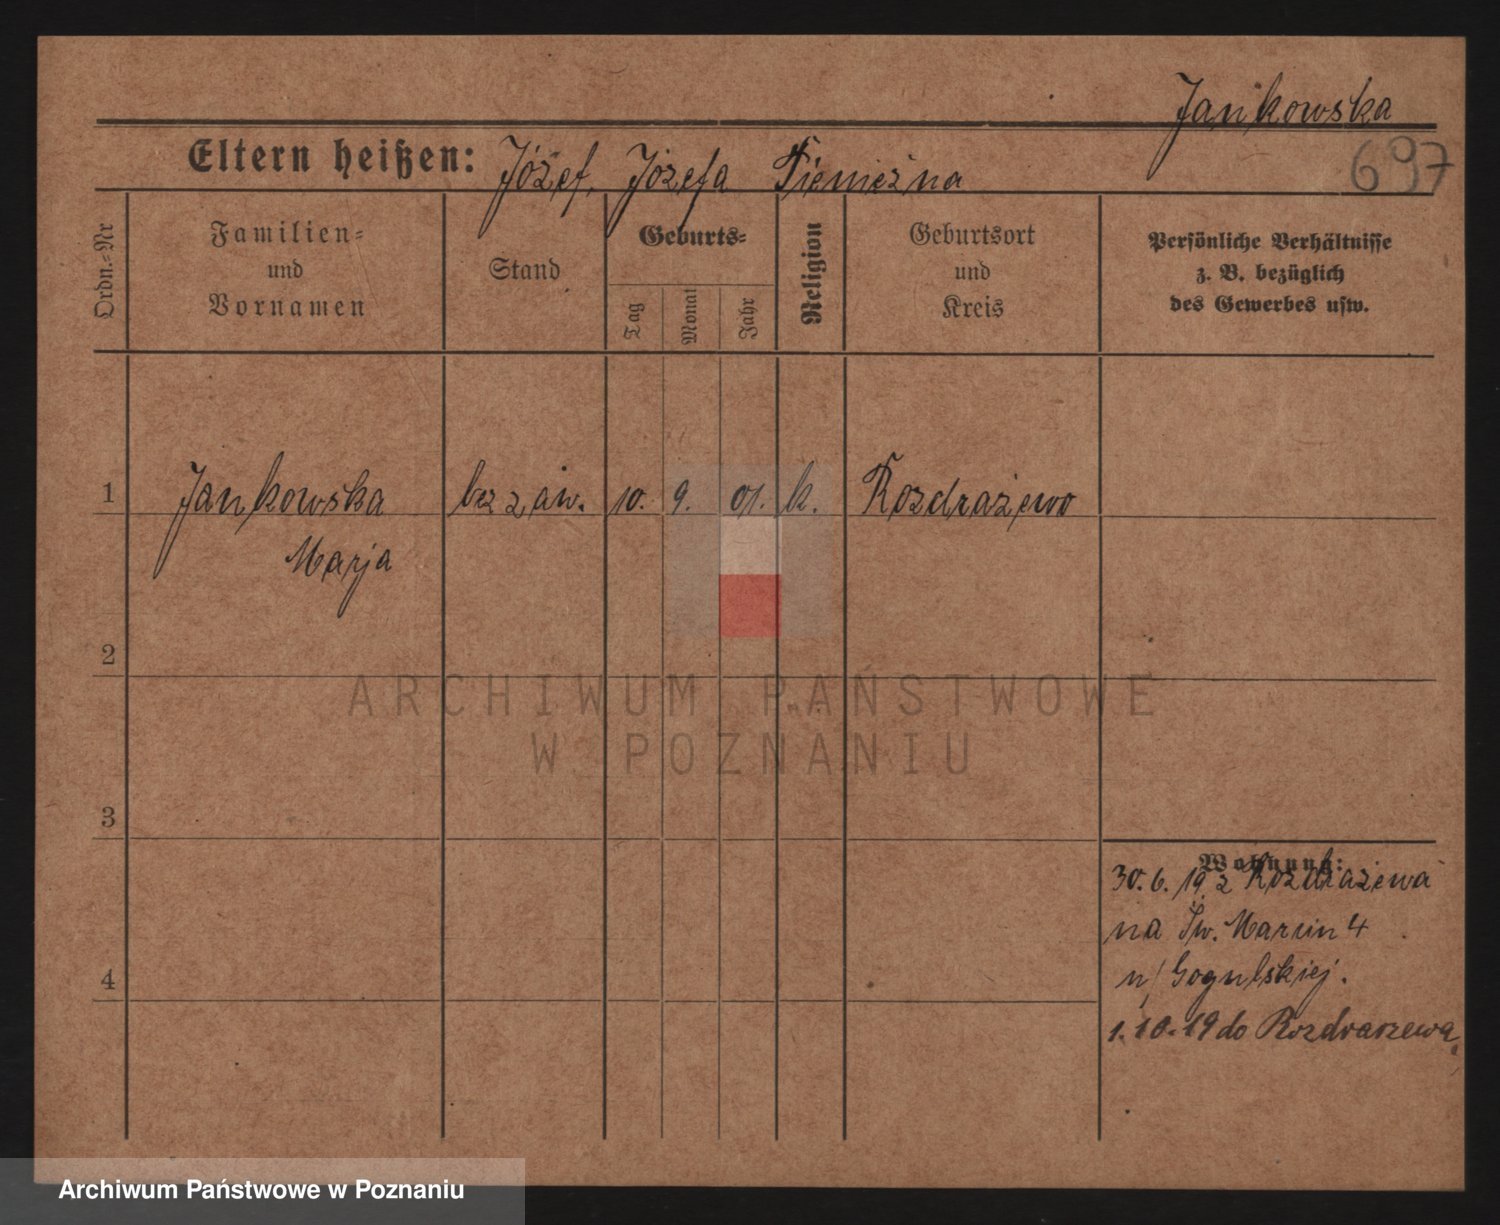 Jankowska
697
Eltern heißen: Józef, Józefa Pieniężna
Ordn.-Nr
Familien-
und
Vornamen
Stand
Geburts-
Tag
Monat
Jahr
Religion
Geburtsort
und
Kreis
Persönliche Verhältnisse
z. B. bezüglich
des Gewerbes usw.
1 Jankowska bez zaw. 10. 9. 01. k. Rozdrażewo
Marja
2
ARCHIWUM PAŃSTWOWE
W POZNANIU
3
Wohnung:
30.6.19 z Rozdrażewa
na Św. Marcin 4
4
u/ Gogulskiej.
1.10.19 do Rozdrarzewa
Archiwum Państwowe w Poznaniu